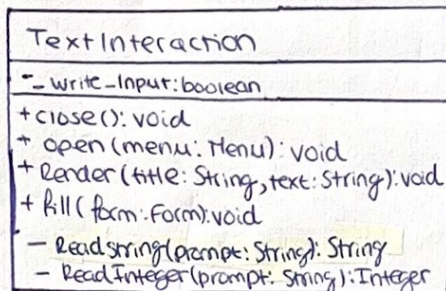 TextInteraction
- _write_Input: boolean
+ close(): void
+ open(menu: Menu): void
+ Render(title: String, text: String): void
+ fill(form: Form): void
- ReadString(prompt: String): String
- ReadInteger(prompt: String): Integer